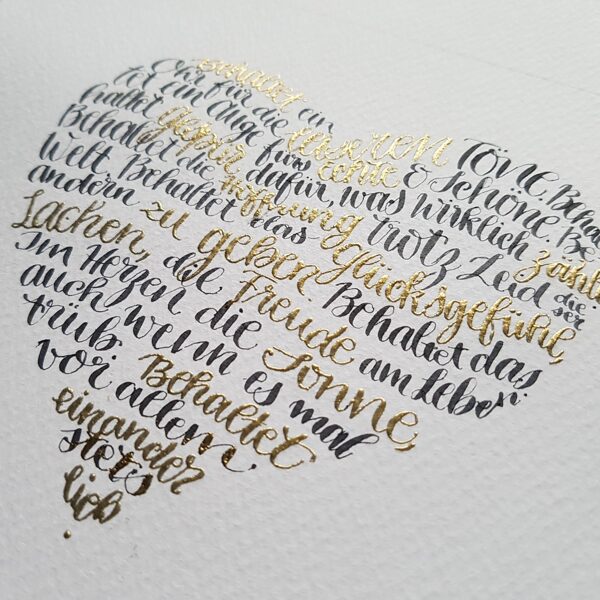 Behaltet ein
Ohr für die leiseren Töne. Behal
tet ein Auge fürs Echte & Schöne. Be
haltet Gespür dafür, was wirklich zählt.
Behaltet die Hoffnung trotz Leid dieser
Welt. Behaltet das Glücksgefühl,
andern zu geben. Behaltet das
Lachen, die Freude am Leben.
Im Herzen die Sonne,
auch wenn es mal
trüb.
vor allem
Behaltet
einander
stets
lieb.